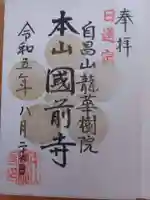 奉拝
日蓮宗
自昌山龍華樹院
本山國前寺
令和五年八月二十日